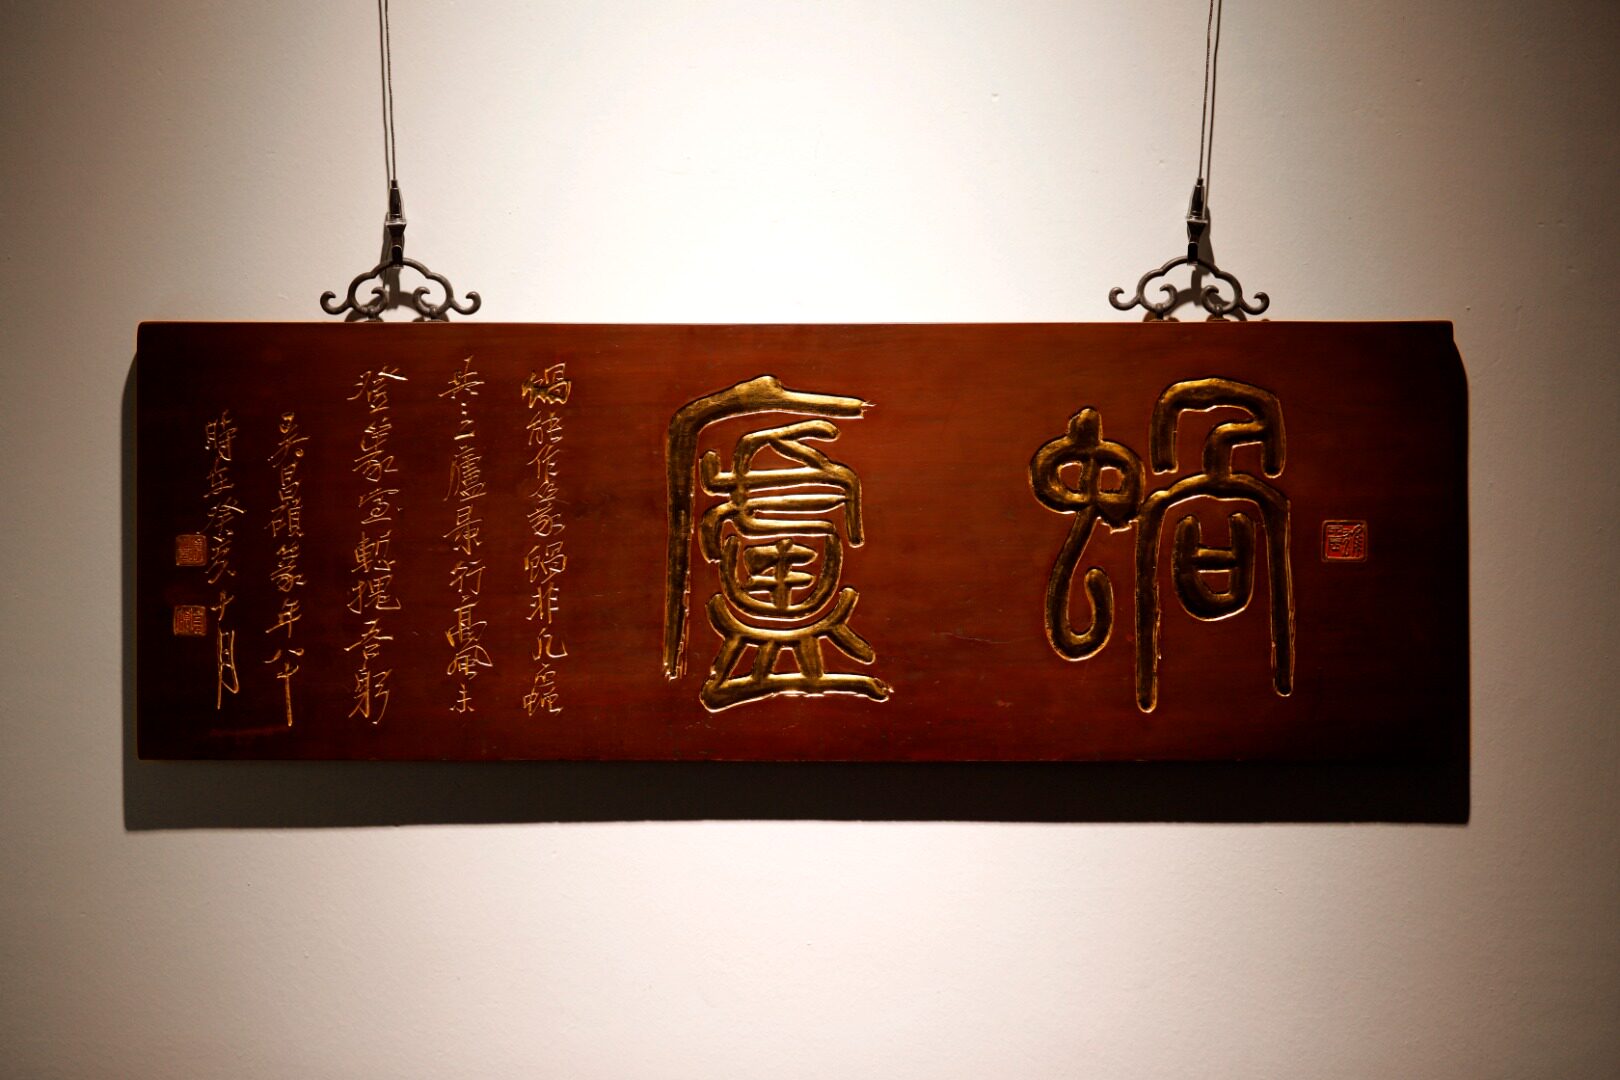 蝸廬
蝸能作篆蝸非凡言蝘
其二廬景行高風未
登堂篆寫慙愧吾躬
吳昌碩篆年八十
時在癸亥十月